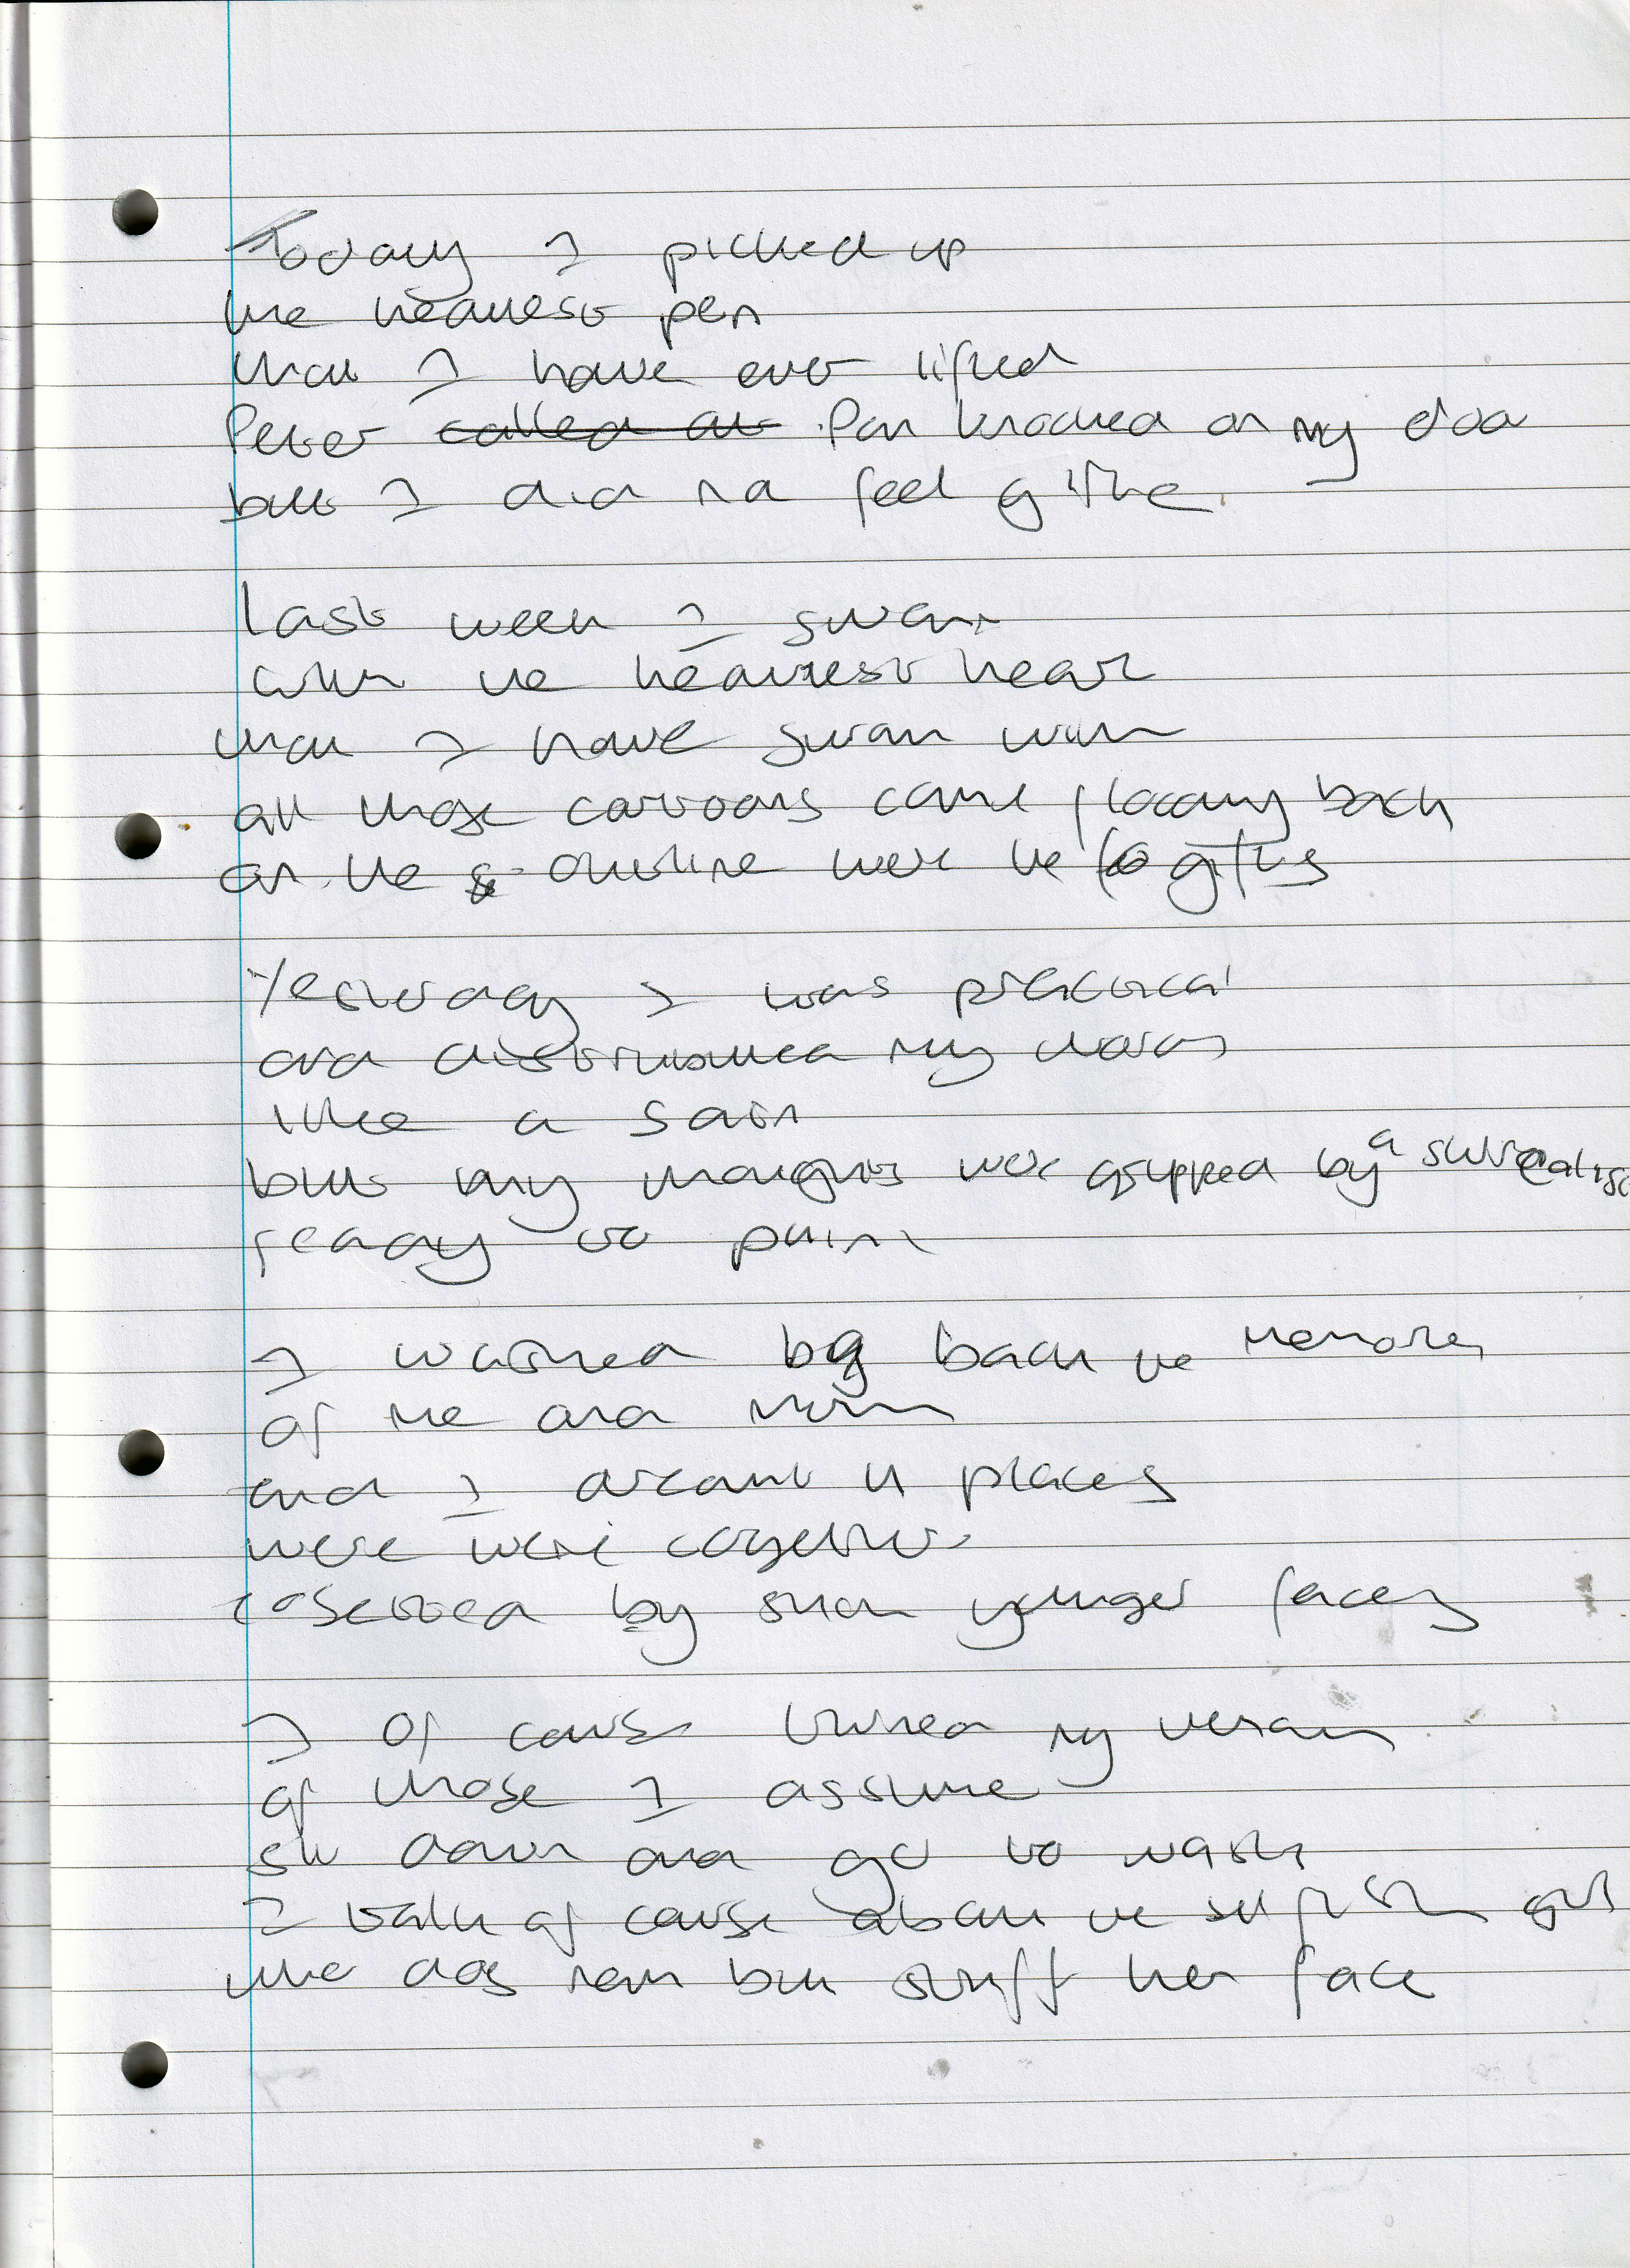 Today I picked up
the heaviest pen
that I have ever lifted
Peter called at Pan knocked on my door
but I did not feel gifted.

Last week I swam
with the heaviest heart
that I have swam with
all those cartoons came flooding back
on the outline were the

Yesterday I was practical
and distributed my words
like a
but my thoughts were gripped by a surrealist
ready to paint

I washed by back the memories
of me and mum
and I dreamt in places
were were together
by such younger faces

I of course my version
of those I assume
sit down and get to wash
I talk of course about the selfish girl
who does not but stuff her face